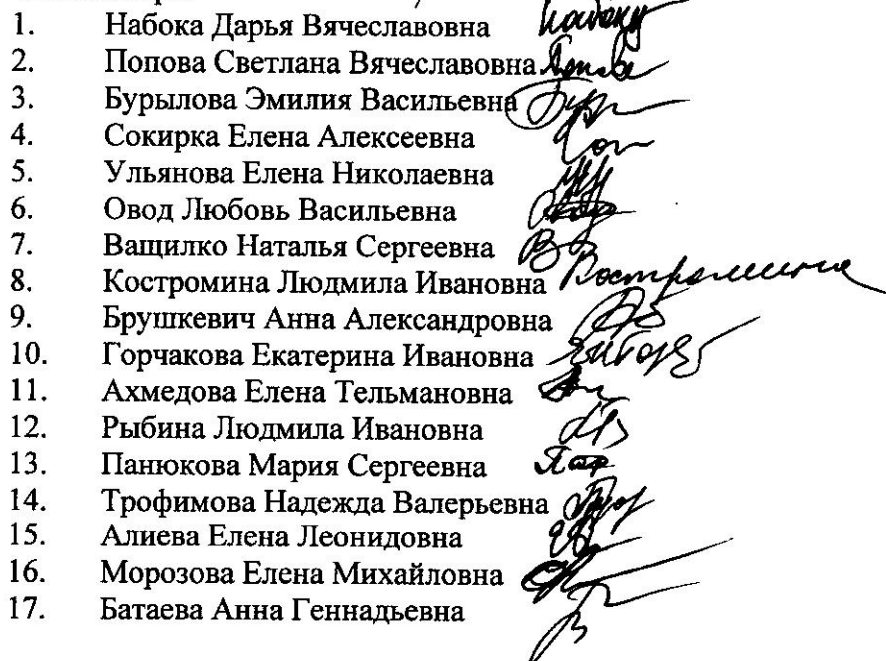 1. Набока Дарья Вячеславовна Набока
2. Попова Светлана Вячеславовна
3. Бурылова Эмилия Васильевна
4. Сокирка Елена Алексеевна
5. Ульянова Елена Николаевна
6. Овод Любовь Васильевна
7. Ващилко Наталья Сергеевна
8. Костромина Людмила Ивановна Костромина
9. Брушкевич Анна Александровна
10. Горчакова Екатерина Ивановна
11. Ахмедова Елена Тельмановна
12. Рыбина Людмила Ивановна
13. Панюкова Мария Сергеевна
14. Трофимова Надежда Валерьевна
15. Алиева Елена Леонидовна
16. Морозова Елена Михайловна
17. Батаева Анна Геннадьевна